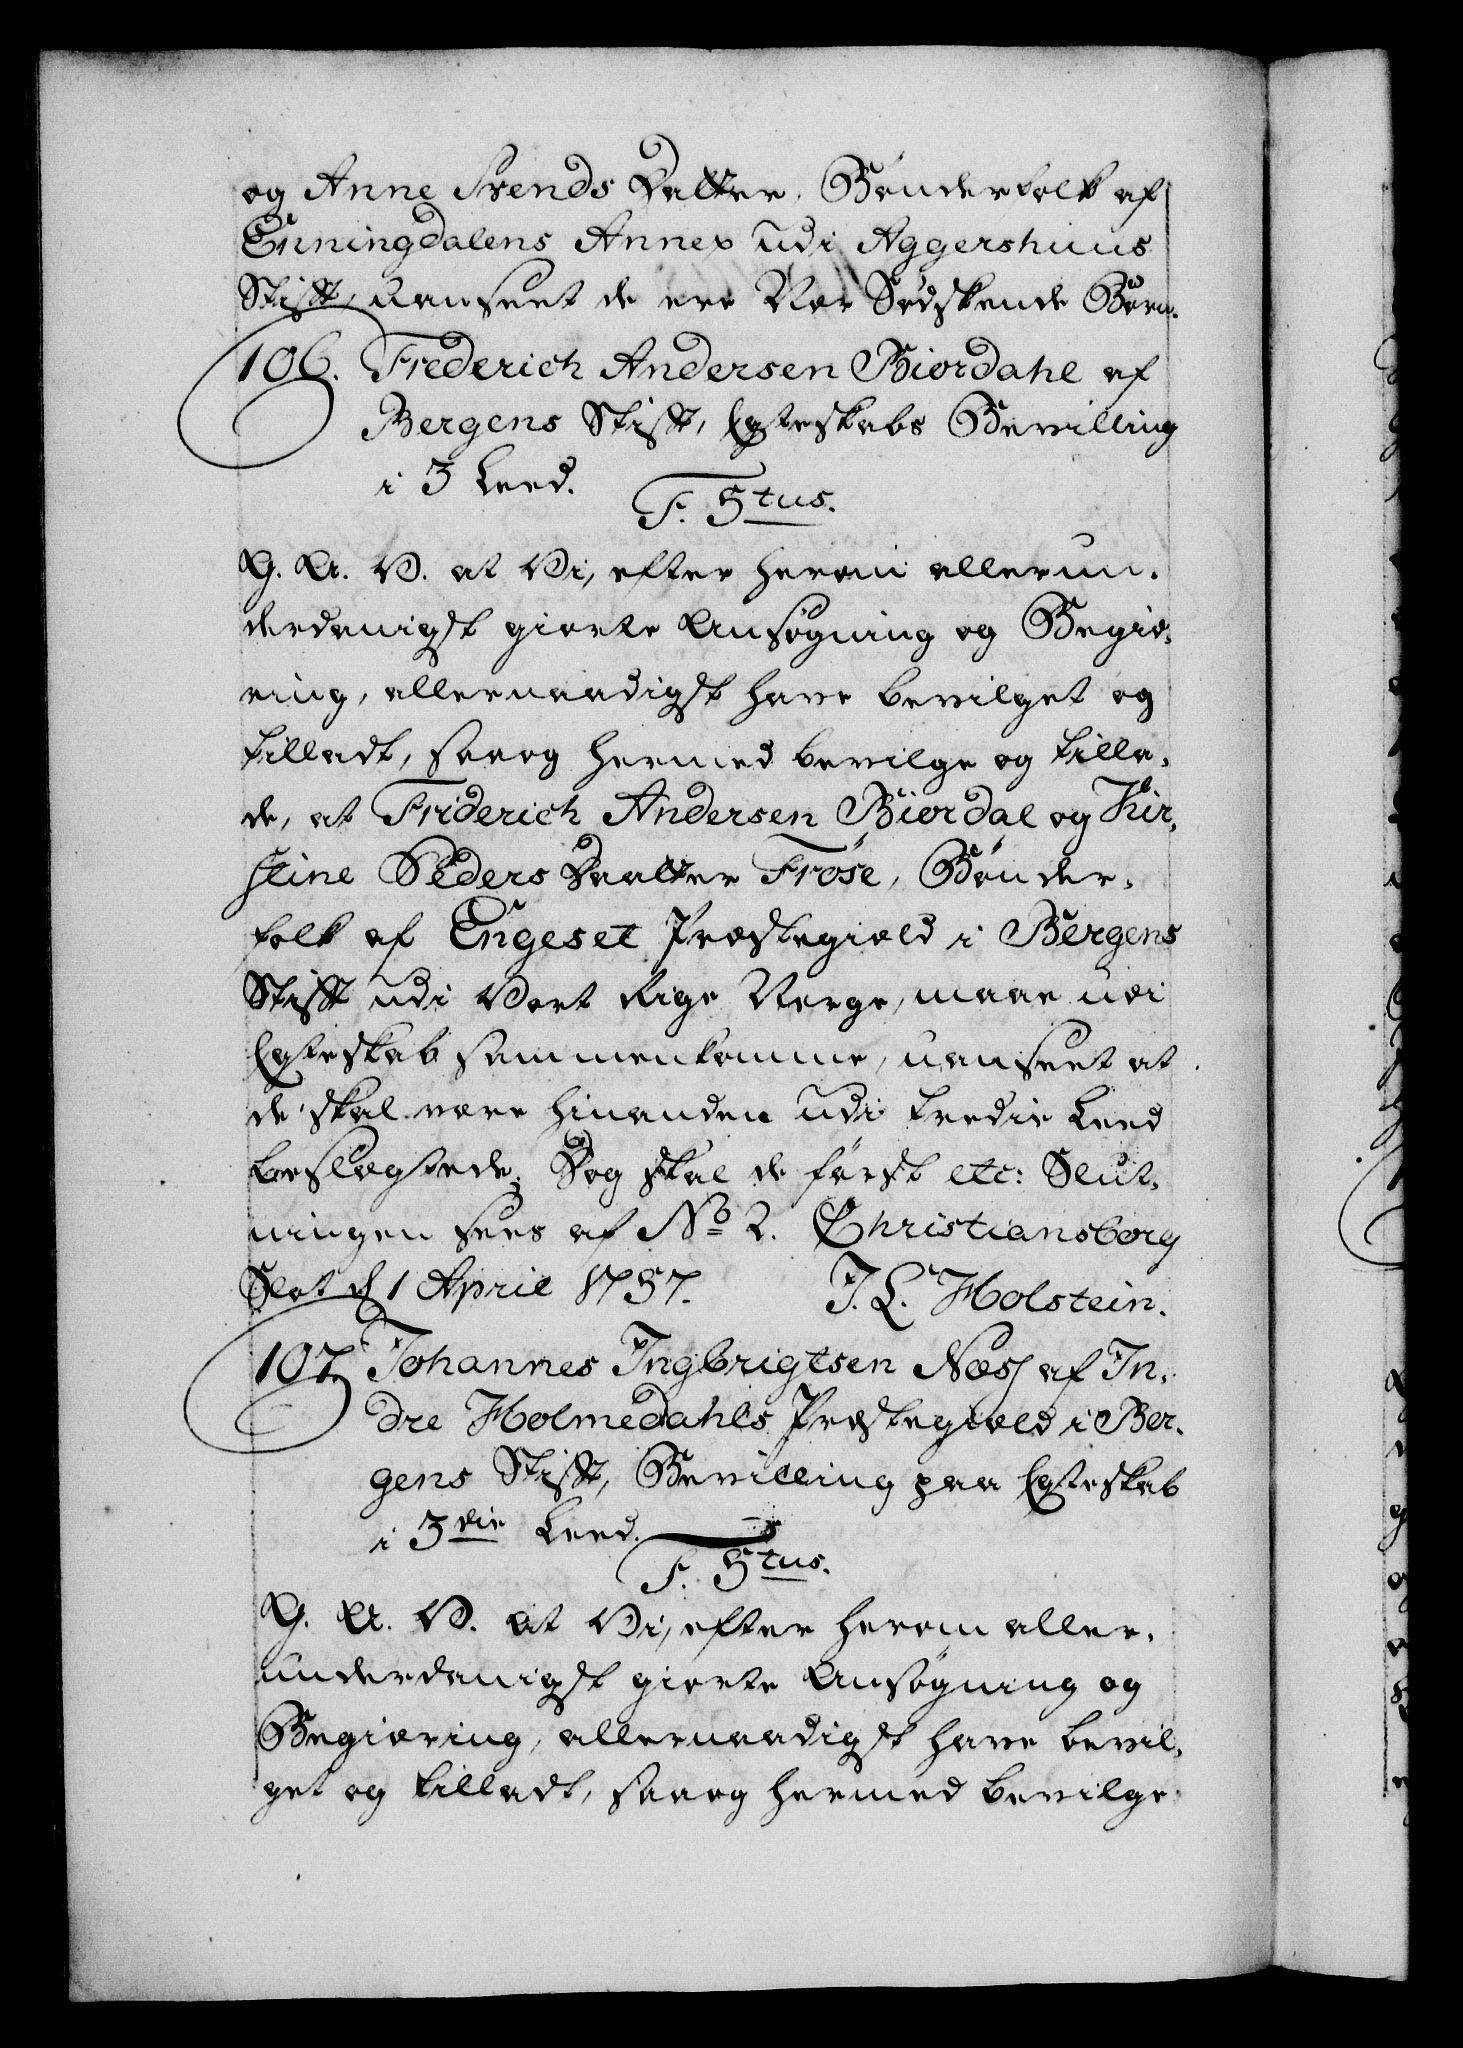 og Anne Svends Datter, Bønderfolk af
Enningdalens Annex udi Aggershuus
Stift, uanseet de ere Nær Sødskende Børn.
106. Frederich Andersen Biordahl af
Bergens Stift, Egteskabs Bevilling
i 3 Leed.
F. 5tus.
G. A. V. at Vi, efter herom allerun-
derdanigst giorte Ansøgning og Begiæ-
ring, allernaadigst have bevilget og
tilladt, saa og hermed bevilge og tilla-
de, at Friderich Andersen Biordal og Kir-
stine Peders Daatter Frøse, Bønder-
folk af Engeset Præstegiæld i Bergens
Stift udi Vort Rige Norge, maae udi
Egteskab sammenkomme, uanseet at
de skal være hinanden udi tredie Leed
beslægtede; Dog skal de først etc: Slut-
ningen sees af No 2. Christiansborg
Slot d 1 April 1757. J. L. Holstein.
107. Johannes Ingbrigtsen Næss af In-
dre Holmedahls Præstegiæld i Ber-
gens Stift, Bevilling paa Egteskab
i 3die Leed.
F. 5tus.
G. A. V. at Vi, efter herom aller-
underdanigst giorte Ansøgning og
Begiæring, allernaadigst have bevil-
get og tilladt, saa og hermed bevilge